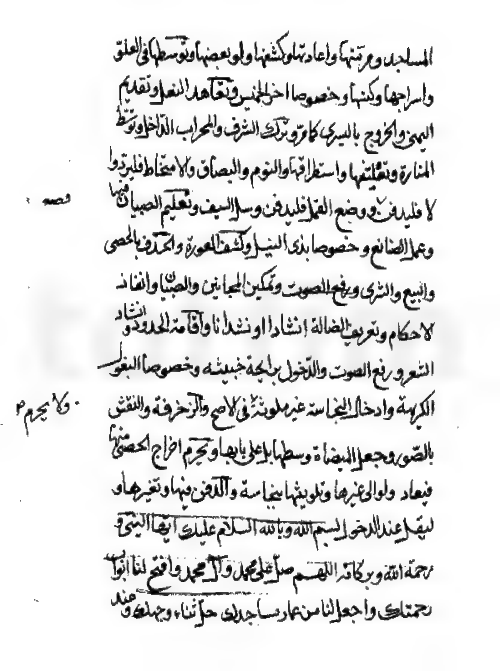 المساجد و مرمتها و اعادتها و كشفها و لو بعضها و توسطها فى العلو
و اسراجها و كنسها و خصوصا اخر الخميس و تعاهد النعل و تقديم
اليمنى و الخروج باليسرى كما مر و ترك الشرف و المحراب الداخل و توسّط
المنارة و تعليتها و استطراقها و النوم و البصاق و الامتخاط فليرد و
لا فليدفن و وضع القمل فليدفن و سل السيف و تعليم الصبيان فيها
قصه
و عمل الصنائع و خصوصا بذى النبل و كشف العورة و الخذف بالحصى
و البيع و الشرى و رفع الصوت و تمكين المجانين و الصبيان و انفاذ
لاحكام و تعريف الضالة انشادا او نشدانا و اقامة الحدود و انشاد
الشعر و رفع الصوت و الدخول برائحة خبيثه و خصوصا البقول
الكريهة و ادخال النجاسة غير ملوثة فى الاصح و الزخرفة و النقش
و لا يحرم
بالصّور و جعل الميضاة وسطها بل على بابها و تحرم اخراج الحصى منها
فيعاد و لو الى غيرها و تلويثها بنجاسة و الدفن فيها و تغيرها و
ليقل عند الدخول بسم الله و بالله السلام عليك ايها النبى و
رحمة الله و بركاته اللهم صل على محمد و آل محمد و افتح لنا ابواب
رحمتك و اجعلنا من عمار مساجدك جل ثناء وجهك و عند